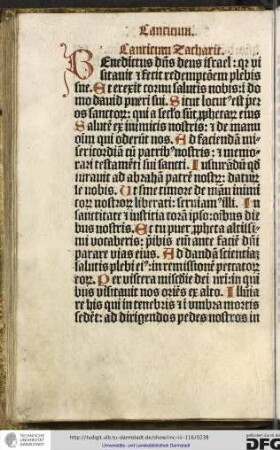 Canticum.
Canticum Zacharie.
BEnedictus dñs deus israel: qꝛ vi
sitauit ⁊ fecit redemptõem plebis
sue. Et erexit cornu salutis nobis: ĩ do
mo dauid pueri sui. Sicut locut⁹ est ꝑ os
sanctoꝝ: qui a seclo sũt ꝓphetaꝝ eius
Salutẽ ex inimicis nostris: ⁊ de manu
oĩm qui oderũt nos. Ad faciendã mi
sericordiã cũ patrib⁹ nostris: ⁊ memo
rari testamẽti sui sancti. Iusiurãdũ qd̃
iurauit ad abrahã patrẽ nostꝝ: daturũ
se nobis. Ut sine timore de manu inimi
coꝝ nostroꝝ liberati: seruiam⁹ illi. In
sanctitate ⁊ iusticia corã ipso: oĩbus die
bus nostris. Et tu puer ꝓpheta altissi
mi vocaberis: p̃ibis eñi ante faciẽ dñi
parare vias eius. Ad dandã scientiaꝫ
salutis plebi ei⁹: in remissionẽ peccatoꝝ
eoꝝ. Per viscera mĩscd̃ie dei nr̃i: in qui
bus visitauit nos oriẽs ex alto. Illuĩa
re his qui in tenebris ⁊ ĩ vmbra mortis
sedẽt: ad dirigendos pedes nostros in
http://tudigit.ulb.tu-darmstadt.de/show/inc-iii-116/0238
Universitäts- und Landesbibliothek Darmstadt
TECHNISCHE
UNIVERSITÄT
DARMSTADT
DFG